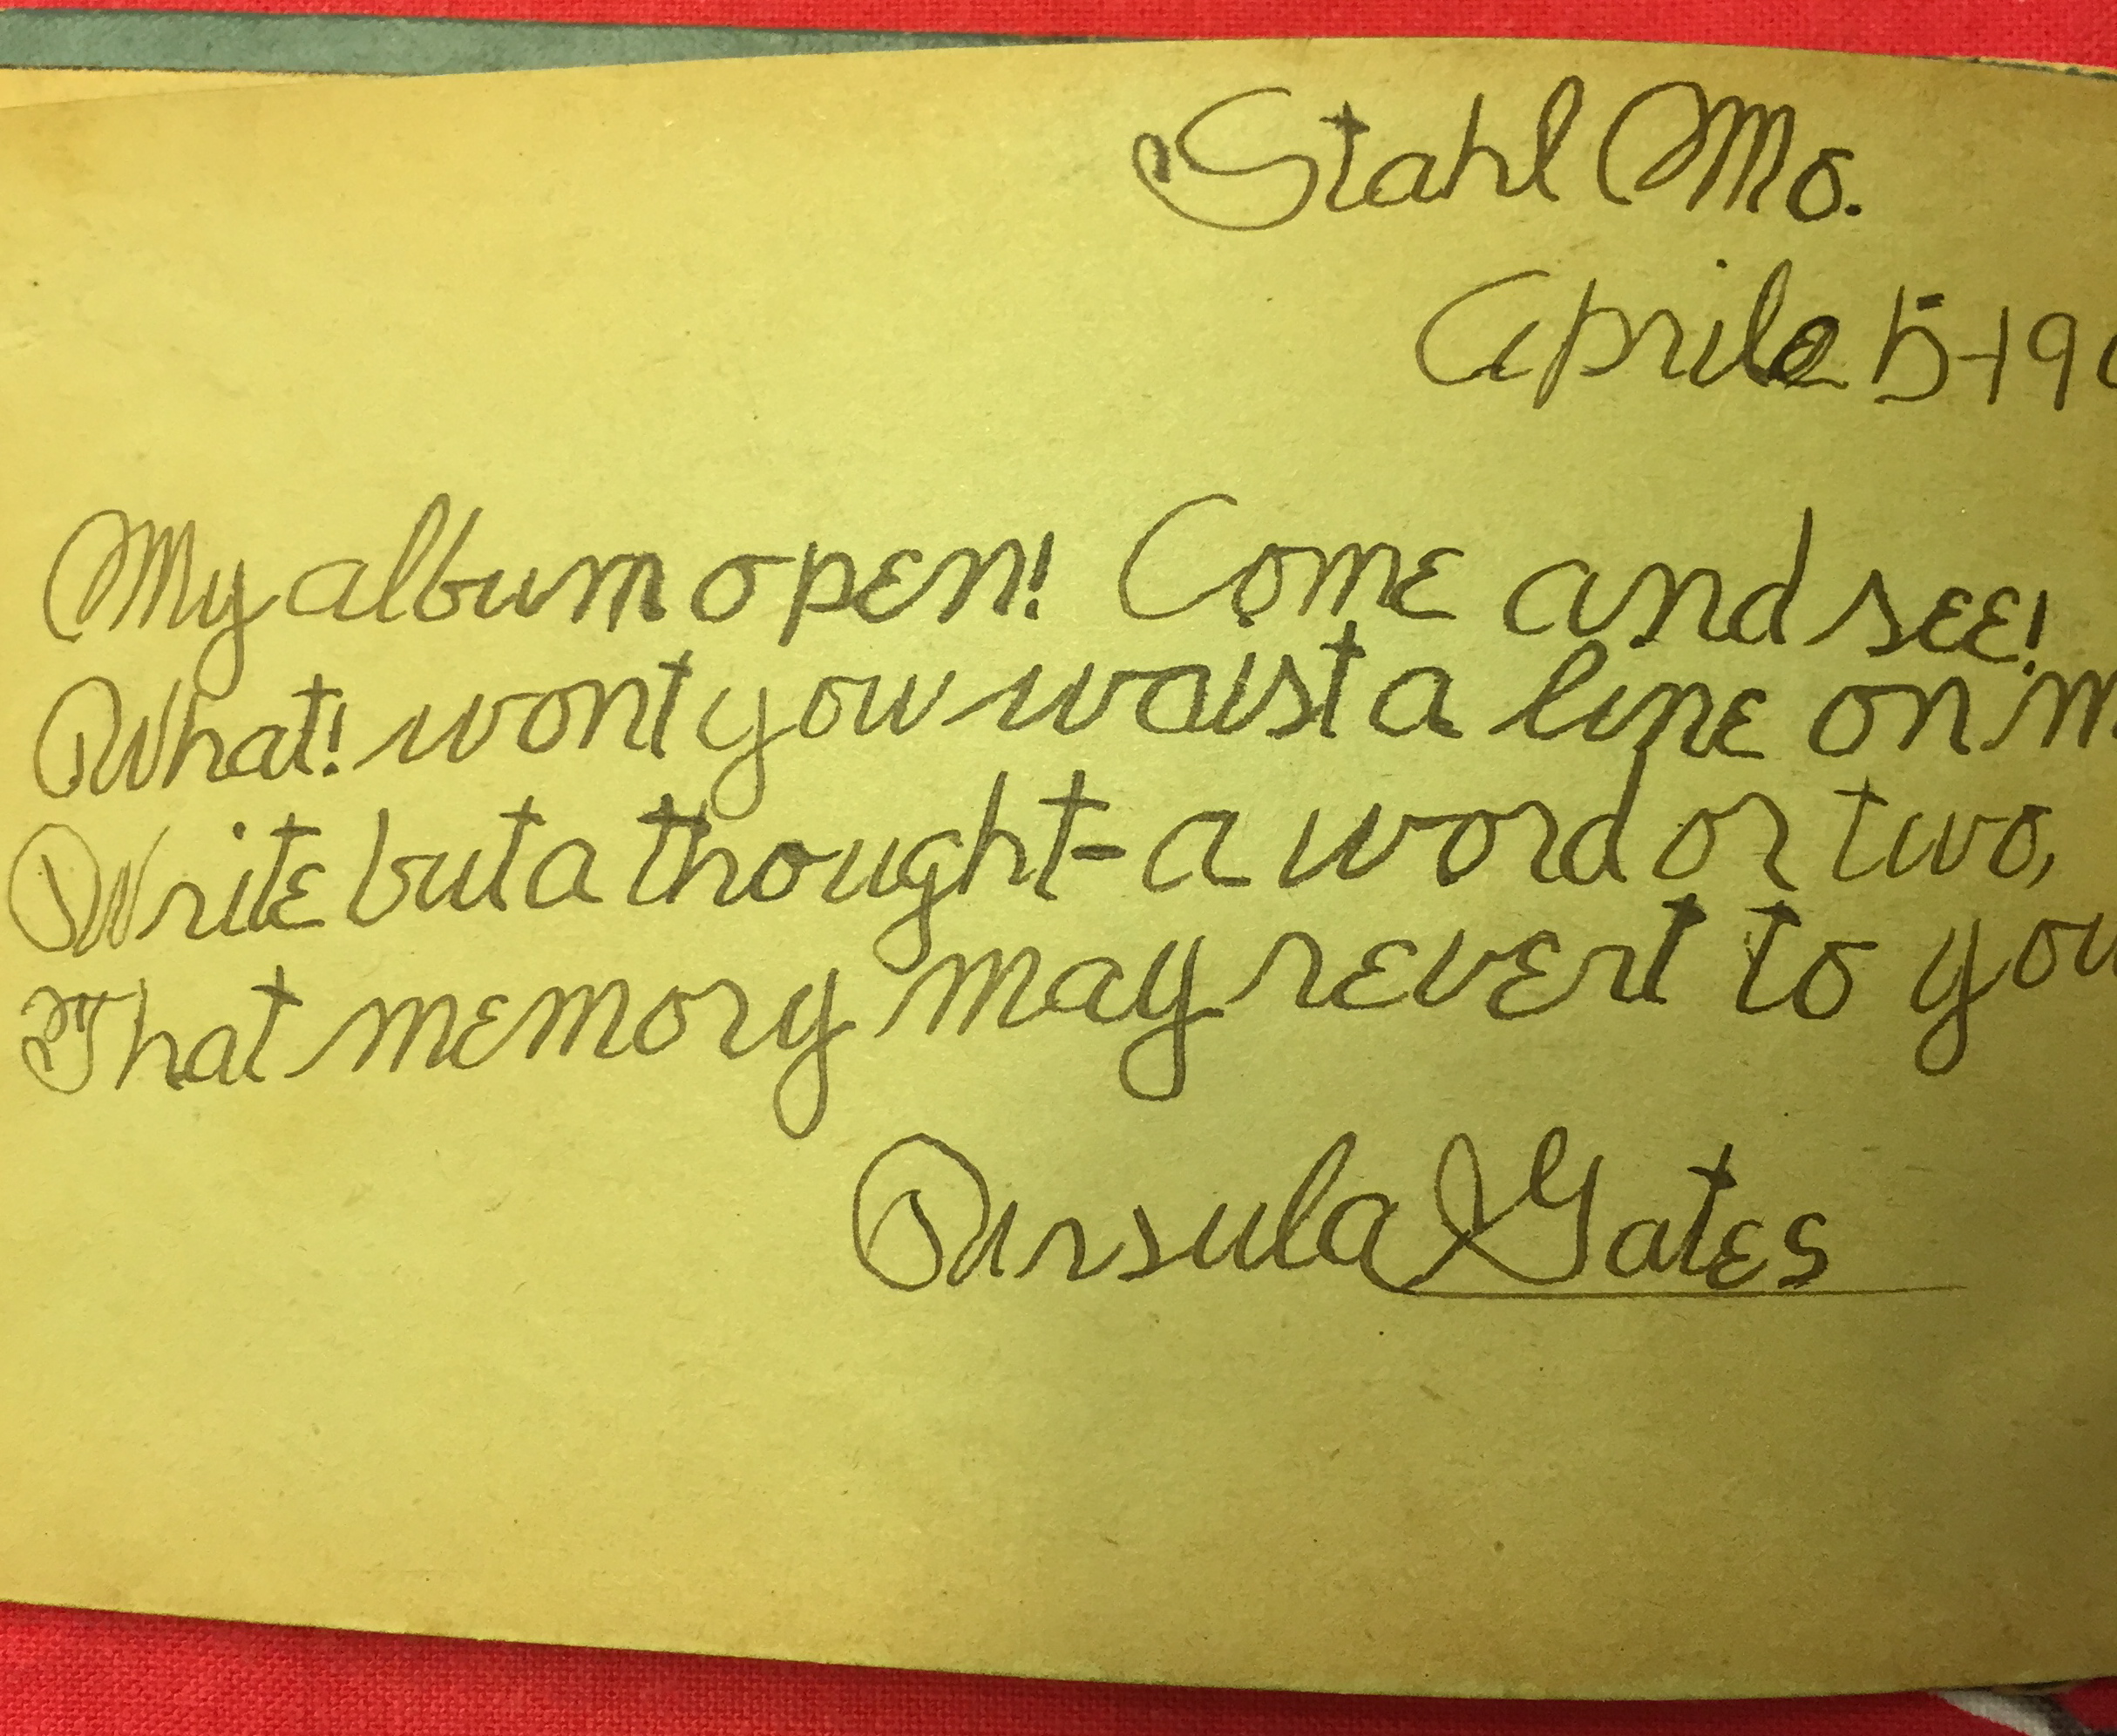 Stahl Mo.
April 25-19
My album open! Come and see!
What! wont you waist a line on m
Write but a thought-a word or two,
That memory may revert to you
Ursula Gates